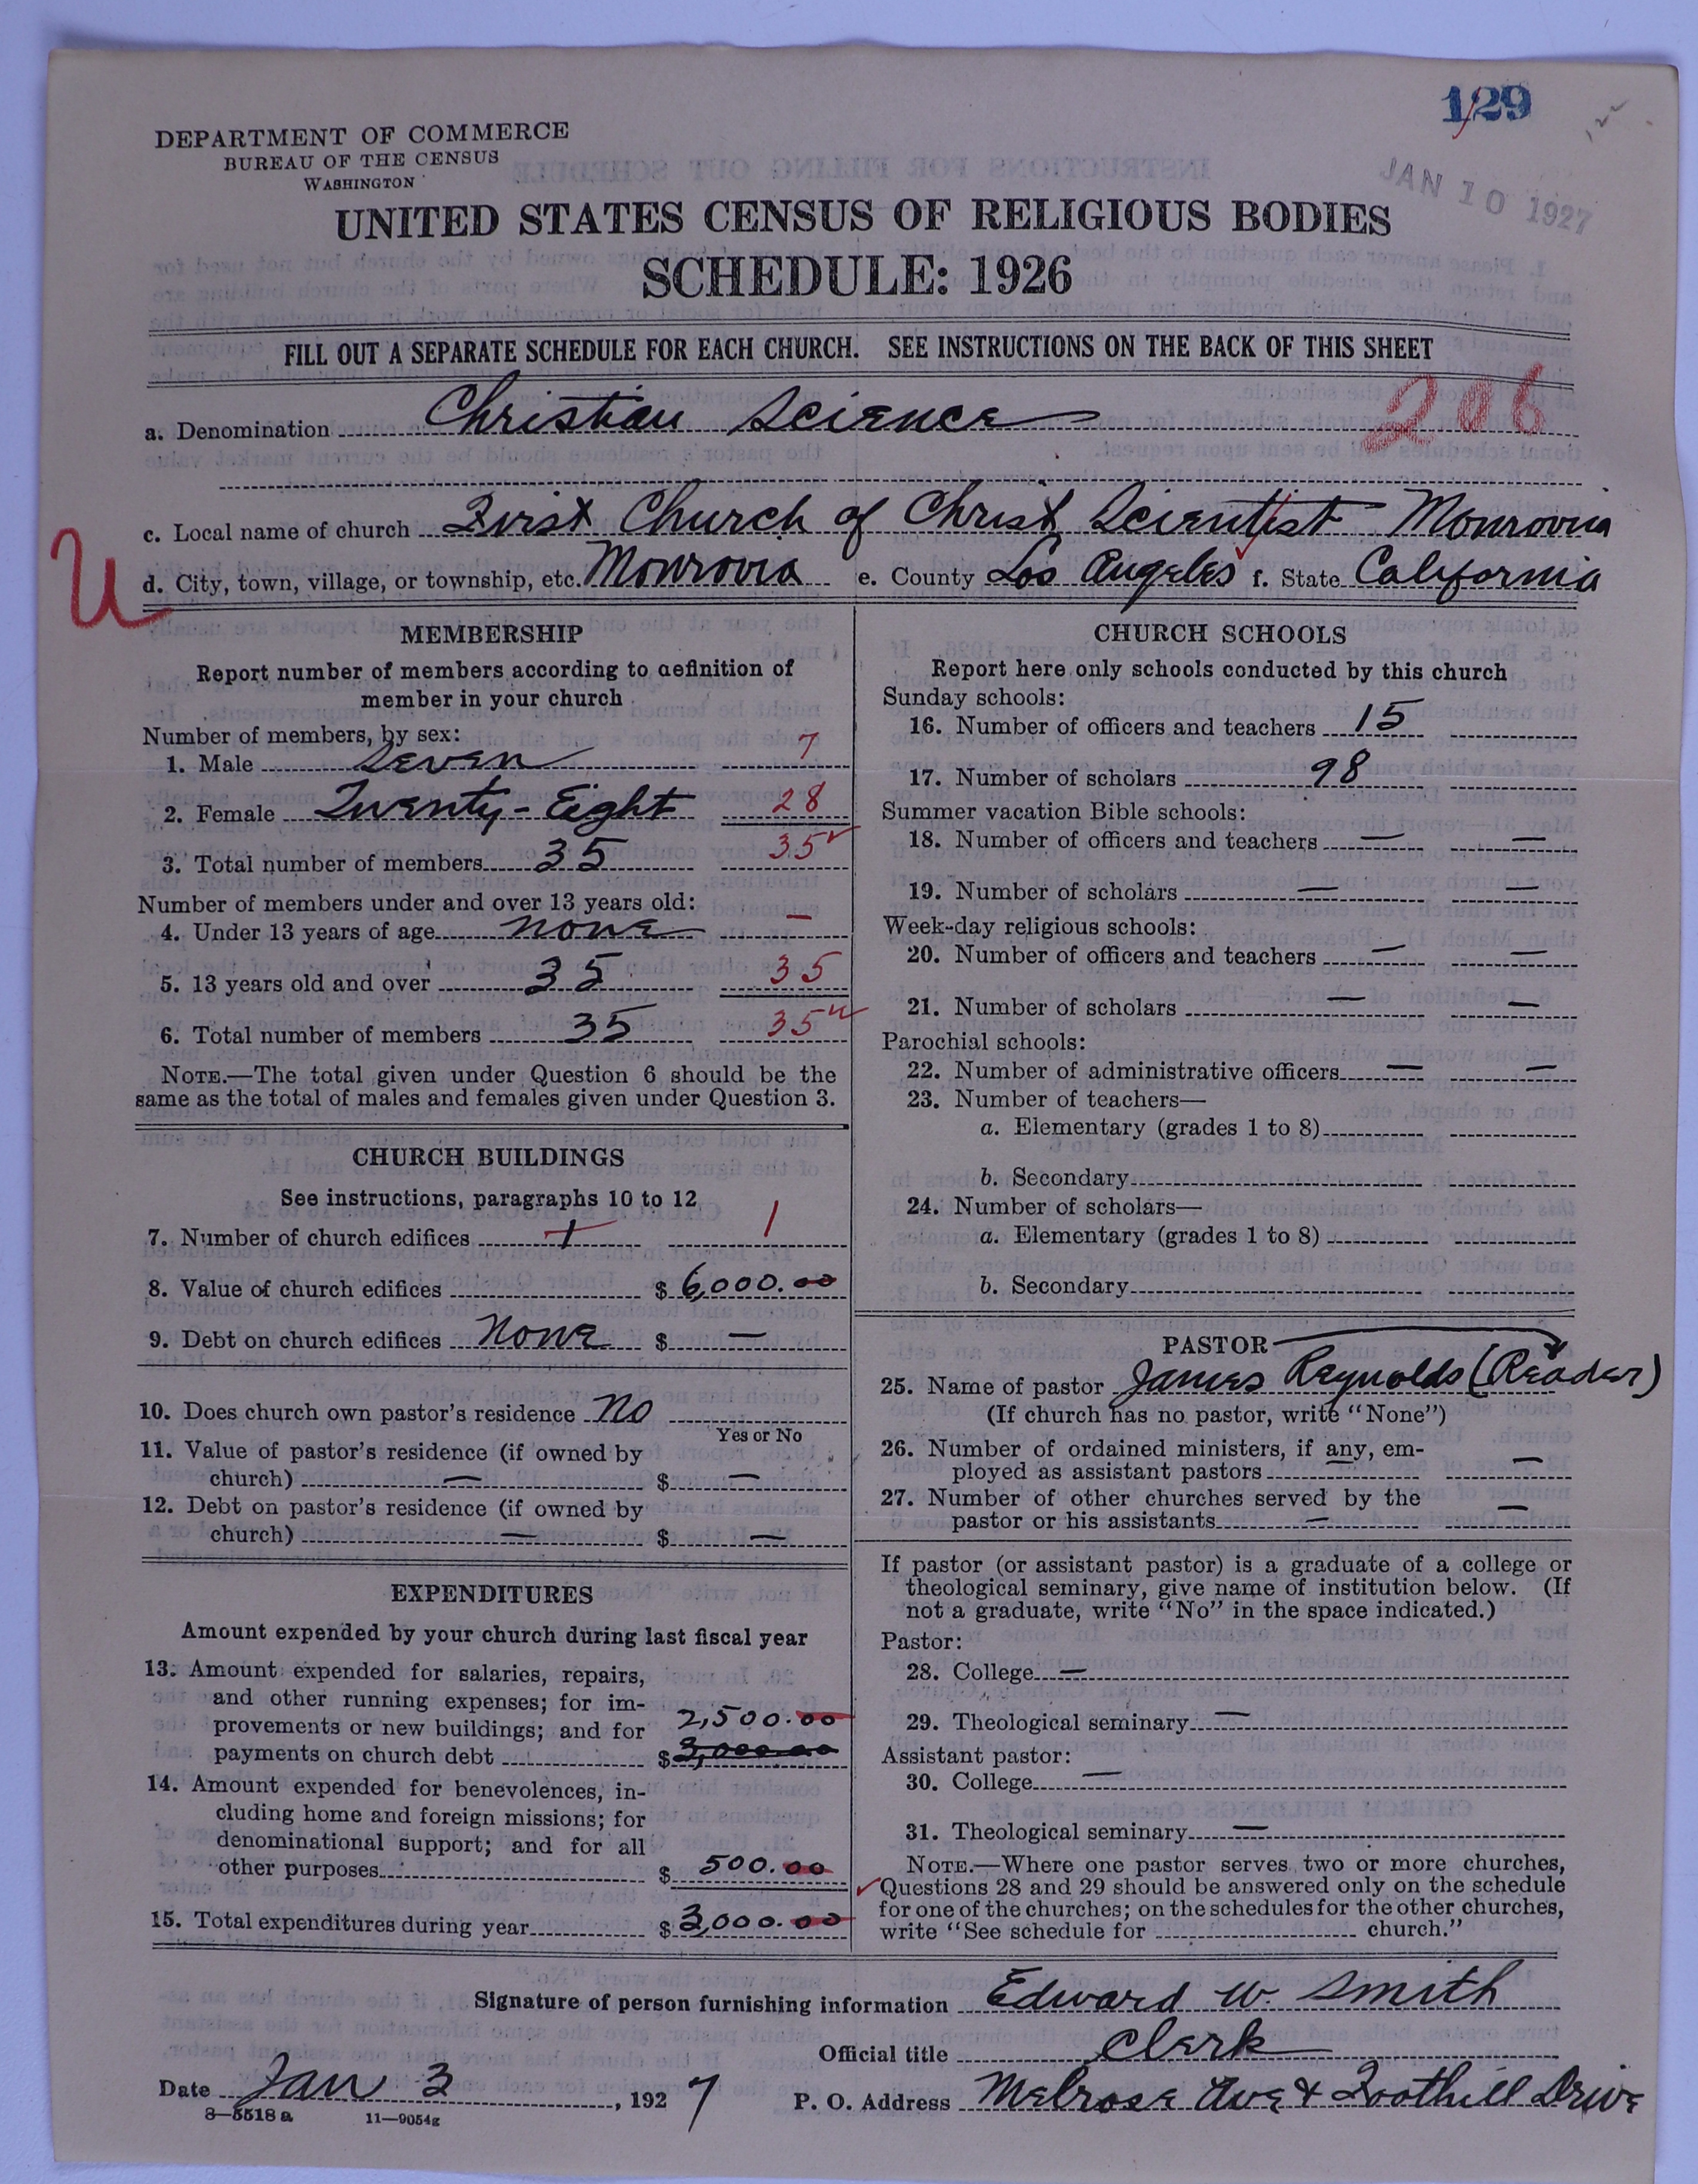 129
JAN 10 1927
DEPARTMENT OF COMMERCE
BUREAU OF THE CENSUS
WASHINGTON
UNITED STATES CENSUS OF RELIGIOUS BODIES
SCHEDULE: 1926
FILL OUT A SEPARATE SCHEDULE FOR EACH CHURCH. SEE INSTRUCTIONS ON THE BACK OF THIS SHEET
206
a. Denomination Christian Science
c. Local name of church First Church of Christ Scientist Monrovia
U
d. City, town, village, or township, etc. Monrovia e. County Los Angeles f. State California
MEMBERSHIP
Report number of members according to definition of
member in your church
Number of members, by sex:
1. Male Seven 7
2. Female Twenty-Eight 28
3. Total number of members 35 35
Number of members under and over 13 years old:
4. Under 13 years of age none —
5. 13 years old and over 35 35
6. Total number of members 35 35
NOTE.—The total given under Question 6 should be the
same as the total of males and females given under Question 3.
CHURCH BUILDINGS
See instructions, paragraphs 10 to 12
7. Number of church edifices 1 1
8. Value of church edifices $ 6,000.00
9. Debt on church edifices None $ —
10. Does church own pastor's residence No
Yes or No
11. Value of pastor's residence (if owned by
church) — $ —
12. Debt on pastor's residence (if owned by
church) — $ —
EXPENDITURES
Amount expended by your church during last fiscal year
13. Amount expended for salaries, repairs,
and other running expenses; for im-
provements or new buildings; and for 2,500.00
payments on church debt $ 3,000.00
14. Amount expended for benevolences, in-
cluding home and foreign missions; for
denominational support; and for all
other purposes $ 500.00
15. Total expenditures during year $ 3,000.00
CHURCH SCHOOLS
Report here only schools conducted by this church
Sunday schools:
16. Number of officers and teachers 15
17. Number of scholars 98
Summer vacation Bible schools:
18. Number of officers and teachers — —
19. Number of scholars — —
Week-day religious schools:
20. Number of officers and teachers — —
21. Number of scholars — —
Parochial schools:
22. Number of administrative officers — —
23. Number of teachers—
a. Elementary (grades 1 to 8)
b. Secondary
24. Number of scholars—
a. Elementary (grades 1 to 8)
b. Secondary
PASTOR
25. Name of pastor James Reynolds (Reader)
(If church has no pastor, write "None")
26. Number of ordained ministers, if any, em-
ployed as assistant pastors — —
27. Number of other churches served by the
pastor or his assistants — —
If pastor (or assistant pastor) is a graduate of a college or
theological seminary, give name of institution below. (If
not a graduate, write "No" in the space indicated.)
Pastor:
28. College —
29. Theological seminary —
Assistant pastor:
30. College —
31. Theological seminary —
NOTE.—Where one pastor serves two or more churches,
Questions 28 and 29 should be answered only on the schedule
for one of the churches; on the schedules for the other churches,
write "See schedule for church."
Signature of person furnishing information Edward W. Smith
Official title Clerk
Date Jan 3, 1927 P. O. Address Melrose Ave & Foothill Drive
8—5518 a 11—9054g